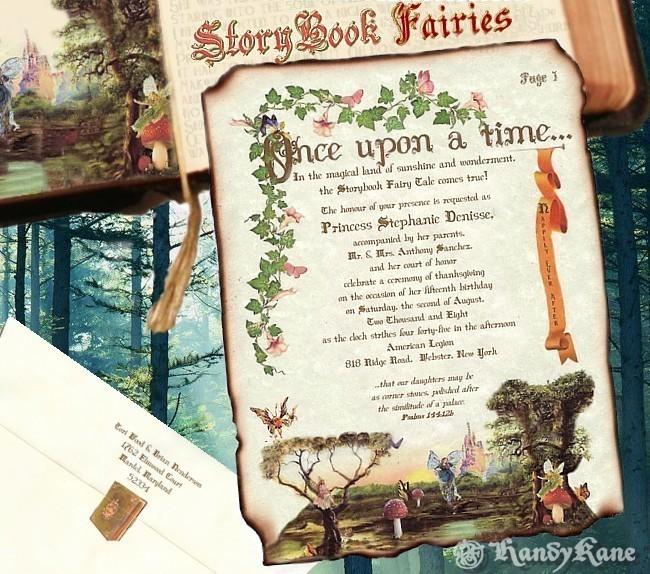 StoryBook Fairies
Page 1
Once upon a time...
In the magical land of sunshine and wonderment,
the Storybook Fairy Tale comes true!
The honour of your presence is requested as
Princess Stephanie Denisse,
accompanied by her parents,
Mr. & Mrs. Anthony Sanchez,
and her court of honor
celebrate a ceremony of thanksgiving
on the occasion of her fifteenth birthday
on Saturday, the second of August,
Two Thousand and Eight
as the clock strikes four forty-five in the afternoon
American Legion
818 Ridge Road, Webster, New York
...that our daughters may be
as corner stones, polished after
the similitude of a palace.
Psalms 144:12b
Happily Ever After
& Brian Henderson
1762 Elmwood Court
Maryland
52334
KandyKane